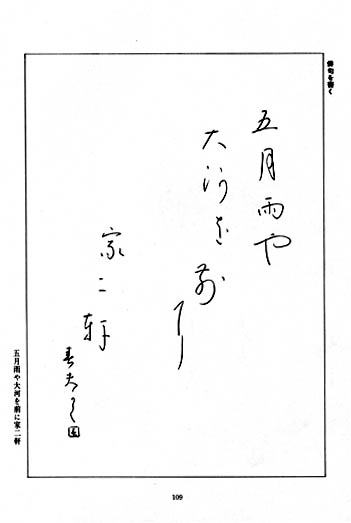 俳句を書く
五月雨や
大河を前に
家二軒
五月雨や大河を前に家二軒
109